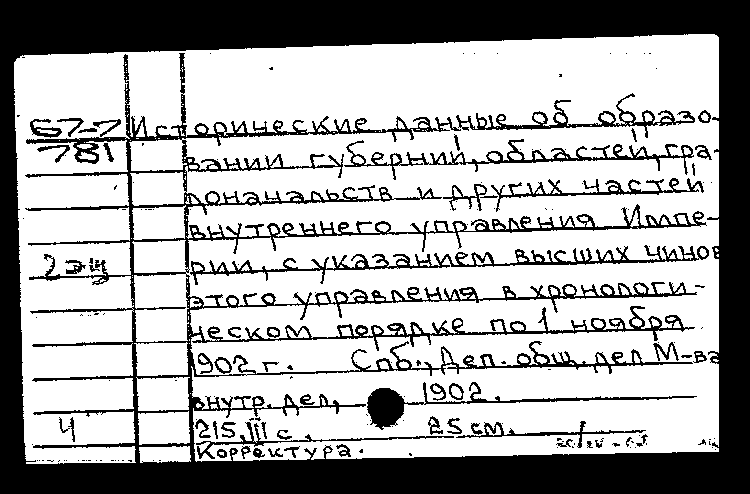 67-7 Исторические данные об образо-
781 вании губерний, областей, гра-
доначальств и других частей
внутреннего управления Импе-
2 эщ рии, с указанием высших чинов
этого управления в хронологи-
ческом порядке по 1 ноября
1902 г. Спб., Деп. общ. дел М-ва
внутр. дел, 1902.
Ч 215, III с. 25 см.
Корректура.